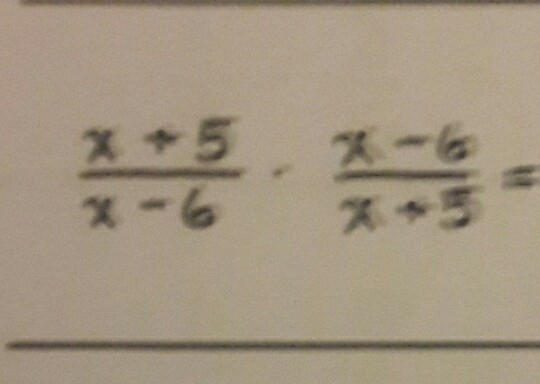 x + 5 / x - 6 · x - 6 / x + 5 =